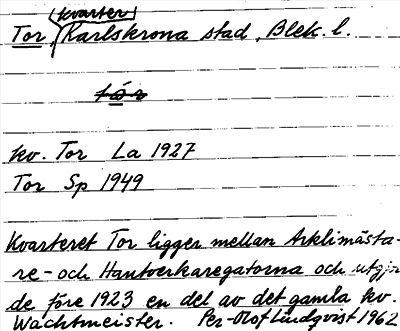 kvarter
Tor, Karlskrona stad, Blek. l.
tór
kv. Tor La 1927
Tor Sp 1949
Kvarteret Tor ligger mellan Arklimästa-
re- och Hantverkaregatorna och utgjor
de före 1923 en del av det gamla kv.
Wachtmeister. Per-Olof Lindqvist 1962